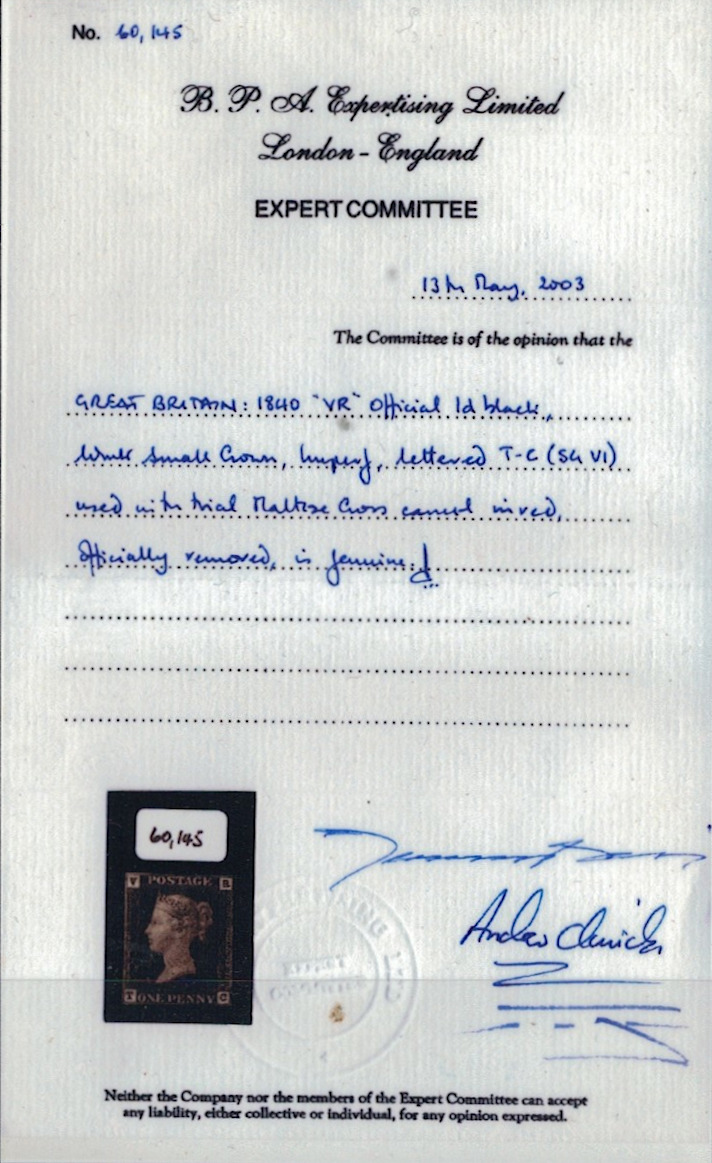 No. 60,145
B. P. A. Expertising Limited
London - England
EXPERT COMMITTEE
13th May, 2003
The Committee is of the opinion that the
GREAT BRITAIN: 1840 "VR" Official 1d black,
wmk Small Crown, Imperf, lettered T-C (SG V1)
used with trial Maltese Cross cancel in red,
officially removed, is genuine.
60,145
V POSTAGE R
T ONE PENNY C
EXPERTISING LTD
EXPERT
COMMITTEE
Neither the Company nor the members of the Expert Committee can accept
any liability, either collective or individual, for any opinion expressed.